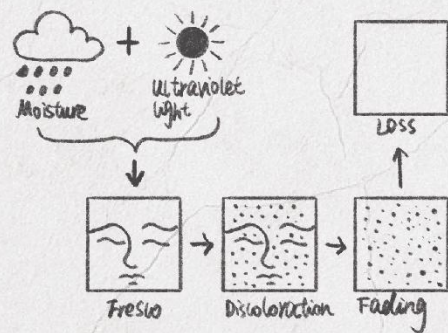 +
Moisture
Ultraviolet
light
Loss
Fresco
Discoloraction
Fading